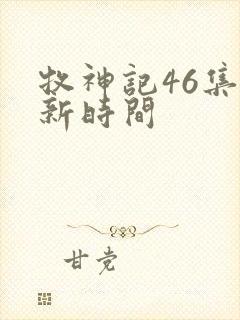 牧神記46集
新時間
甘党